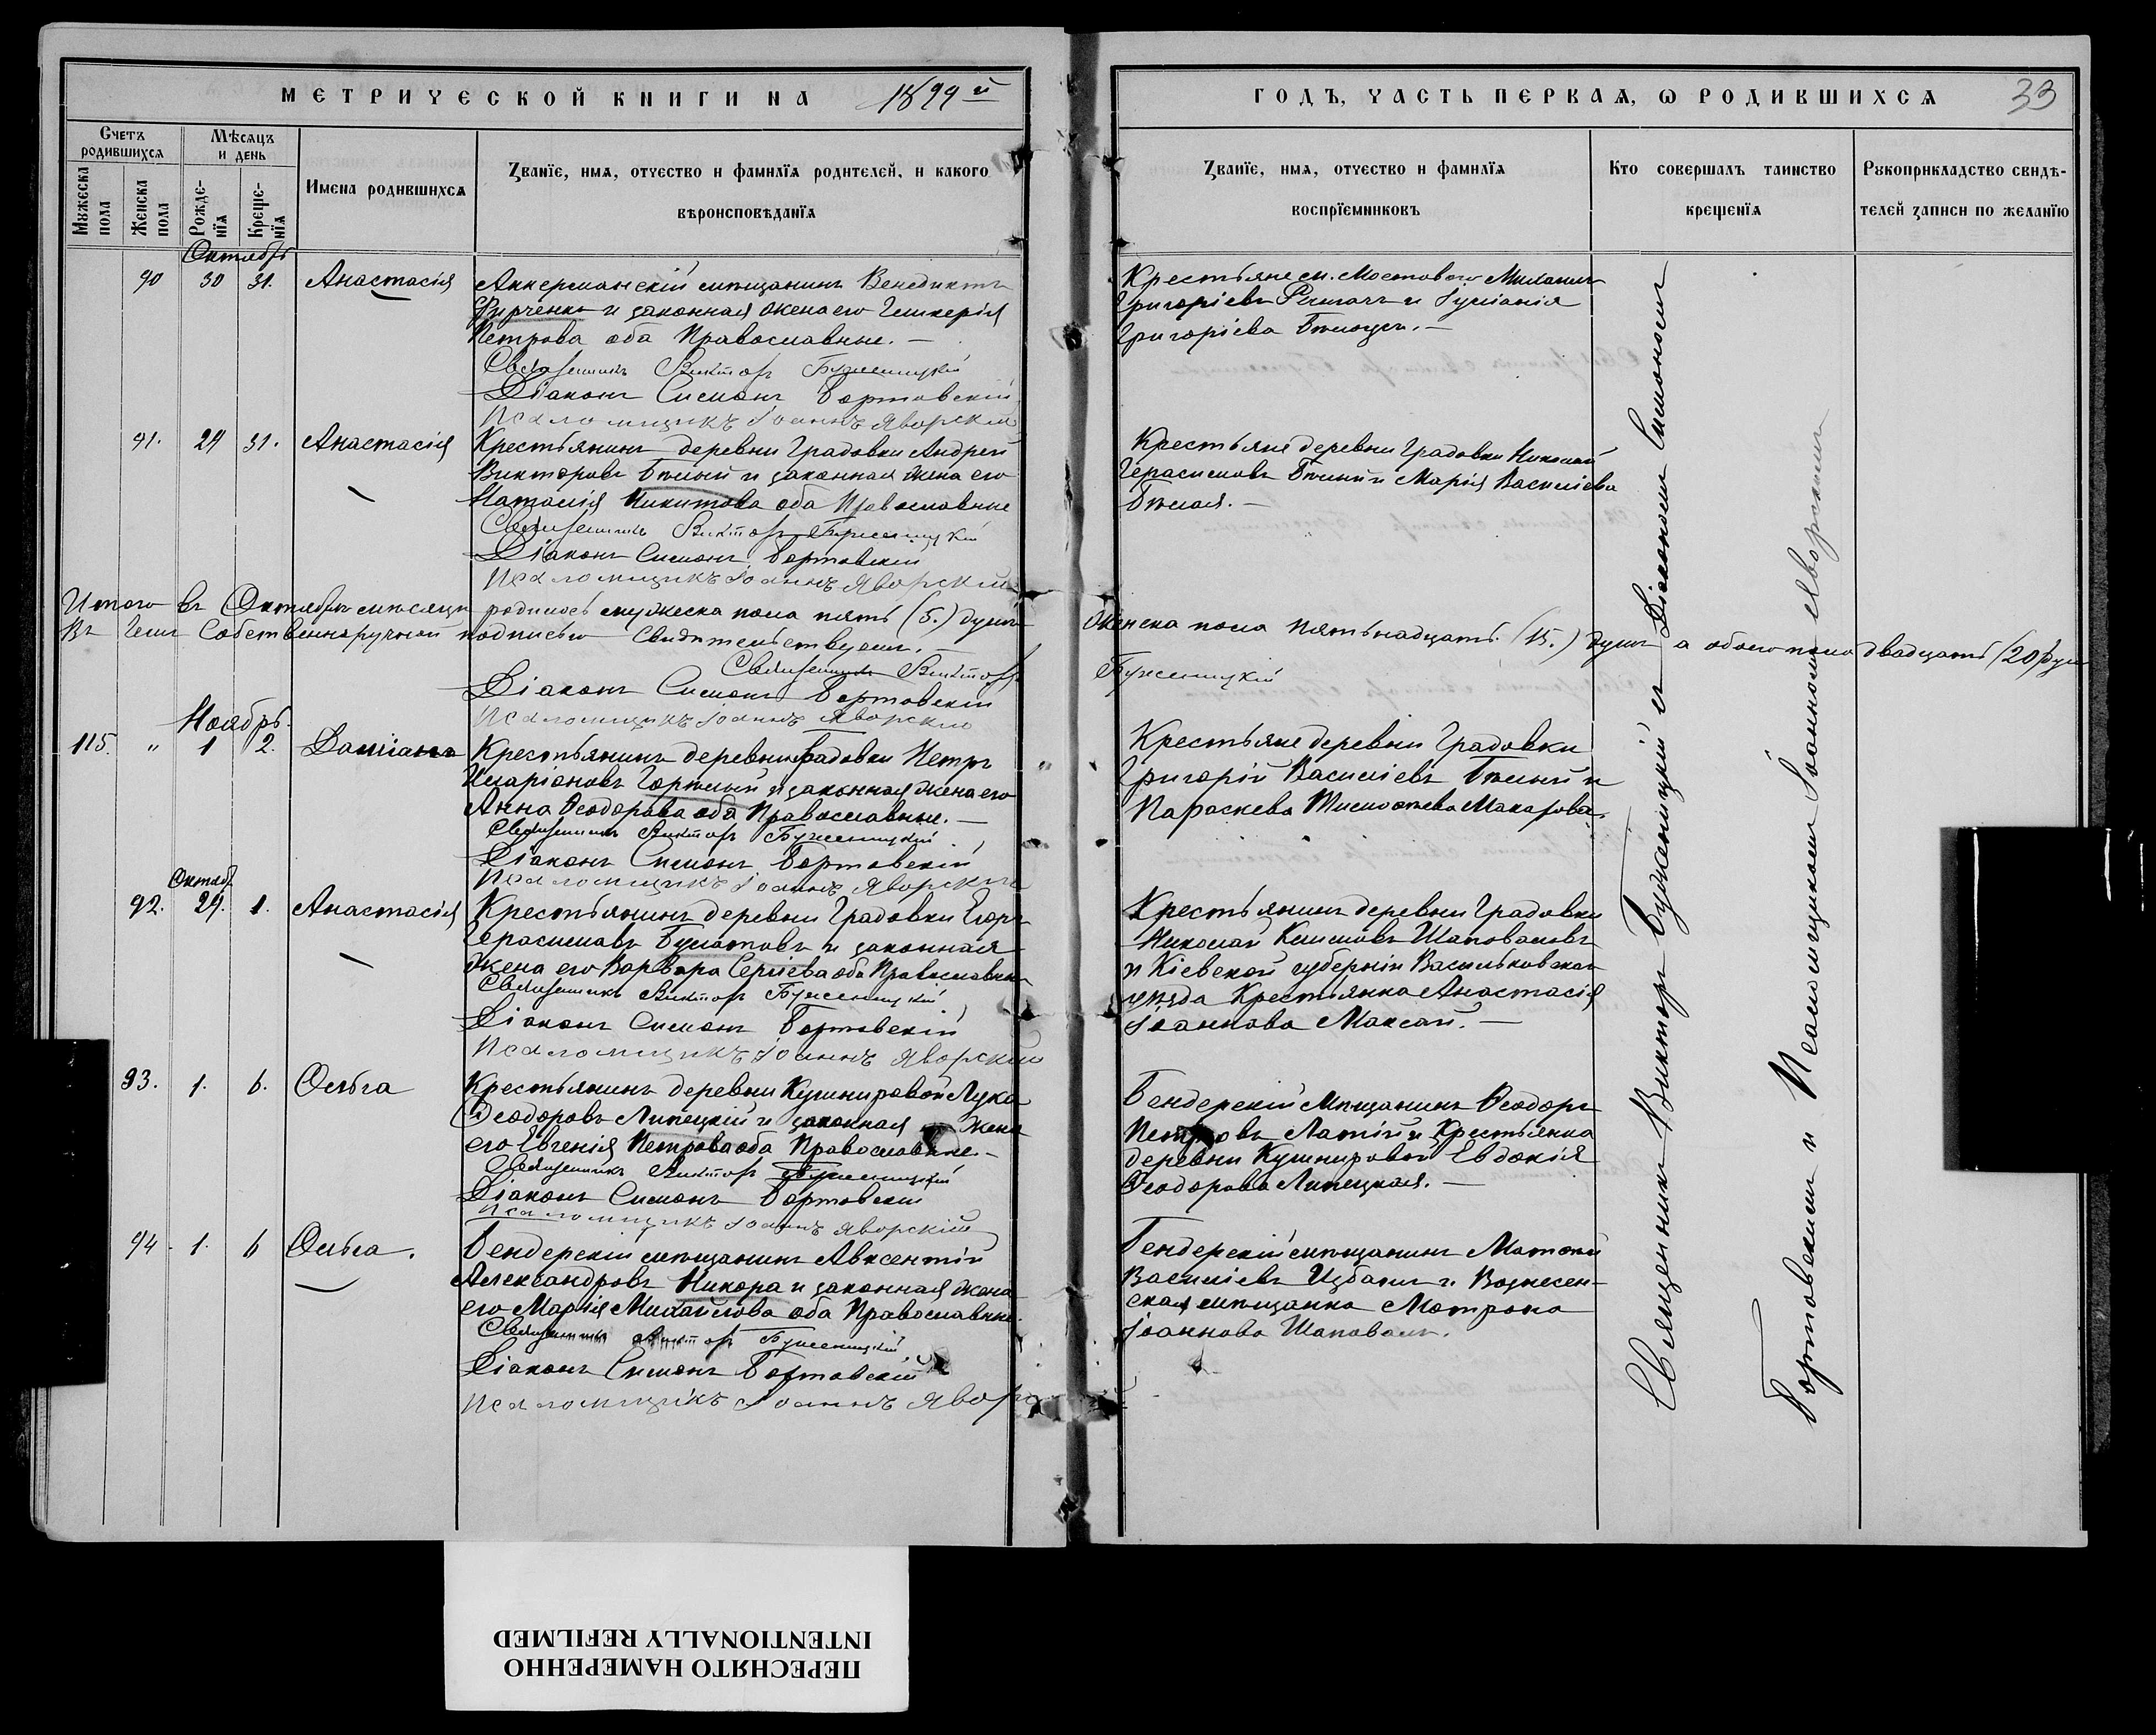 МЕТРИЧЕСКОЙ КНИГИ НА 1899й
ГОДЪ, ЧАСТЬ ПЕРВАЯ, Ѡ РОДИВШИХСЯ 33
Счетъ родившихся
Мѣсяцъ и день
Мужеска пола
Женска пола
Рожденія
Крещенія
Имена родившихся
Званіе, имя, отчество и фамилія родителей, и какого
вѣроисповѣданія
Званіе, имя, отчество и фамилія
воспріемниковъ
Кто совершалъ таинство
крещенія
Рукоприкладство свидѣ-
телей записи по желанію
Октябрь
90 30 31. Анастасія
Аккерманскій мѣщанинъ Венедиктъ
и законная жена его Гликерія
Петрова оба Православные. —
Священникъ Викторъ Буженицкій
Діаконъ Симонъ Бортовскій
Псаломщикъ Іоаннъ Яворскій
Крестьяне
Григоріевъ
Григоріева
91. 29 31. Анастасія
Крестьянинъ деревни Градовки Андрей
Викторовъ Бѣлый и законная жена его
Наталія Никитова оба Православные
Священникъ Викторъ Буженицкій
Діаконъ Симонъ Бортовскій
Псаломщикъ Іоаннъ Яворскій
Крестьяне деревни Градовки Николай
Герасимовъ Бѣлый и Марія Василіева
Бѣлая. —
Итого въ Октябрѣ мѣсяцѣ родилось мужеска пола пять (5.) душъ женска пола пятьнадцать (15.) душъ а обоего пола двадцать (20) душ
Въ чемъ Собственноручной подписью Свидѣтельствуемъ. —
Священникъ Викторъ Буженицкій
Діаконъ Симонъ Бортовскій
Псаломщикъ Іоаннъ Яворскій
Ноябрь.
115. " 1 2. Даміанъ
Крестьянинъ деревни Градовки Петръ
Иларіоновъ и законная жена его
Анна Ѳеодорова оба Православные. —
Священникъ Викторъ Буженицкій
Діаконъ Симонъ Бортовскій
Псаломщикъ Іоаннъ Яворскій
Крестьяне деревни Градовки
Григорій Василіевъ Бѣлый и
Параскева Тимоѳеева Макарова.
Октяб
92. 29. 1. Анастасія
Крестьянинъ деревни Градовки Егоръ
Герасимовъ Булатовъ и законная
жена его Варвара Сергіева оба Православные
Священникъ Викторъ Буженицкій
Діаконъ Симонъ Бортовскій
Псаломщикъ Іоаннъ Яворскій
Крестьянинъ деревни Градовки
Николай Климовъ Шаповаловъ
и Кіевской губерніи Васильковскаго
уѣзда Крестьянка Анастасія
Іоаннова Максай. —
93. 1. 6. Ольга
Крестьянинъ деревни Кушнировой Лука
Ѳеодоровъ Липецкій и законная жена
его Евгенія Петрова оба Православные. —
Священникъ Викторъ Буженицкій
Діаконъ Симонъ Бортовскій
Псаломщикъ Іоаннъ Яворскій
Бендерскій Мѣщанинъ Ѳеодоръ
Петровъ Латій и Крестьянка
деревни Кушнировой Евдокія
Ѳеодорова Липецкая. —
94. 1. 6 Ольга.
Бендерскій мѣщанинъ Авксентій
Александровъ Никора и законная жена
его Марія Михайлова оба Православные.
Священникъ Викторъ Буженицкій
Діаконъ Симонъ Бортовскій
Псаломщикъ Іоаннъ Яворс
Бендерскій мѣщанинъ
Василіевъ Избашъ и Вознесен-
ская мѣщанка Матрона
Іоаннова Шаповалъ.
Священникъ Викторъ Буженицкій съ Діакономъ Симономъ
Бортовскимъ и Псаломщикомъ Іоанномъ Яворскимъ
ПЕРЕСНЯТО НАМЕРЕННО
INTENTIONALLY REFILMED